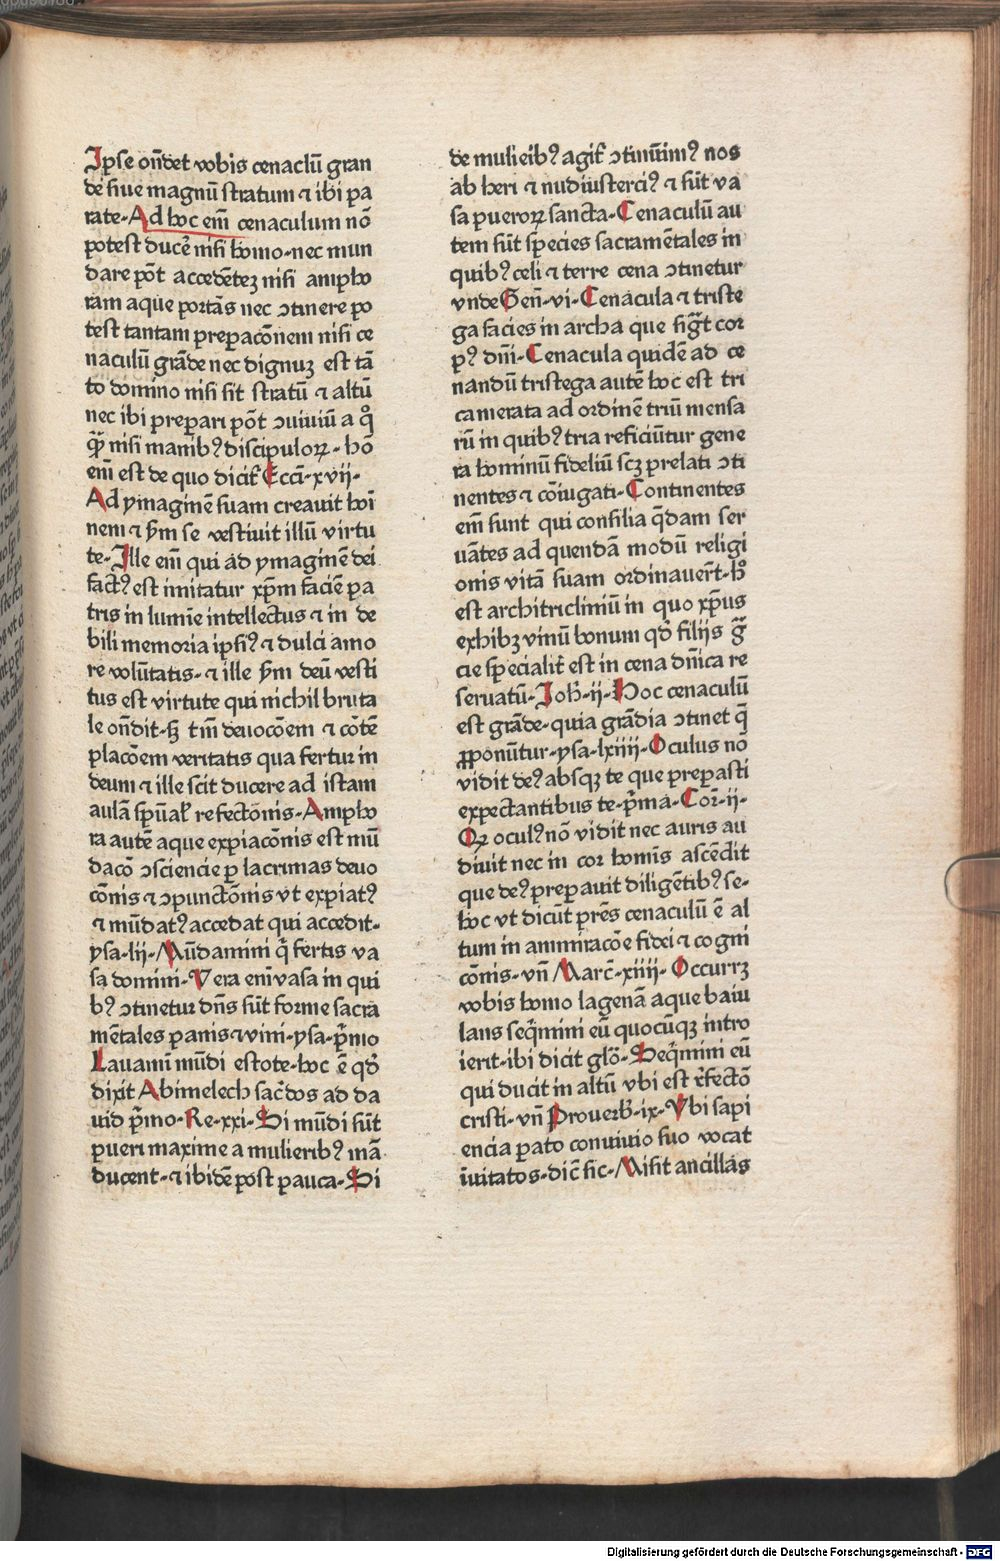 Ipse oñdet vobis cenaclū gran
dē siue magnū stratum ⁊ ibi pa
rate·Ad hoc em̄ cenaculum nō
potest ducē nisi homo·nec mun
dare pōt accedētez nisi ampho
ram aque portās nec ꝯtinere po
test tantam preparacōnem nisi ce
naculū grāde nec dignuz est tā
to domino nisi sit stratū ⁊ altū
nec ibi preparari pōt ꝯuiuiū a qͦ
nisi manibꝰ discipuloꝝ· hō
em̄ est de quo dicit̄ Ecci·xvij·
Ad ymaginē suam creauit hoī
nem ⁊ ẜm se vestiuit illū virtu
te·Ille em̄ qui ad ymaginē dei
factꝰ est imitatur xp̄m faciē pa
tris in lumīe intellectus ⁊ in de
bili memoria ipsiꝰ ⁊ dulci amo
re volūtatis·⁊ ille ẜm deū vesti
tus est virtute qui nichil bruta
le oñdit·ẜꝫ tm̄ deuocōem ⁊ cōtē
placōem veritatis qua fertur in
deum ⁊ ille scit ducere ad istam
aulā sp̄ual̄ refectōnis·Ampho
ra autē aque expiacōnis est mū
dacō ꝯsciencie ꝑ lacrimas deuo
cōnis ⁊ ꝯpunctōnis vt expiatꝰ
⁊ mūdatꝰ accedat qui accedit·
ysa·lij·Mūdamini q̄ fertis va
sa domini·Vera eniṽasa in qui
bꝰ ꝯtinetur dn̄s sūt forme sacra
mētales panis ⁊ vini·ysa·p̄mo
Lauamī mūdi estote·hoc ē qd̄
dixit Abimelech sac̄dos ad da
uid p̄mo·Re·xxi·Si mūdi sūt
pueri maxime a mulieribꝰ mā
ducent·⁊ ibidē post pauca·Si
de mulieibꝰ agit̄ ꝯtinūimꝰ nos
ab heri ⁊ nudiusterciꝰ ⁊ sūt va
sa pueroꝝ sancta·Cenaculū au
tem sūt species sacramētales in
quibꝰ celi ⁊ terre cena ꝯtinetur
vnde Gen̄·vi·Cenacula ⁊ triste
ga facies in archa que fig̃t cor
pꝰ dn̄i·Cenacula quidē ad ce
nandū tristega autē hoc est tri
camerata ad ordinē triū mensa
rū in quibꝰ tria reficiūtur gene
ra hominū fideliū scꝫ prelati ꝯti
nentes ⁊ cōiugati·Continentes
em̄ sunt qui consilia q̄dam ser
uātes ad quendā modū religi
onis vitā suam ordinauer̄t·hͦ
est architricliniū in quo xp̄us
exhibꝫ vinū bonum qd̄ filijs g̃
cie specialit̄ est in cena dn̄ica re
seruatū·Joh̄·ij·Hoc cenaculū
est grāde·quia grādia ꝯtinet q̄
ꝓponūtur·ysa·lxiiij·Oculus no
vidit deꝰ absqꝫ te que preparasti
expectantibus te·p̄ma·Cor̄·ij·
Qꝝ oculꝰ nō vidit nec auris au
diuit nec in cor homīs ascēdit
que deꝰ preparauit diligētibꝰ se·
hoc vt dicūt pr̄es cenaculū ē al
tum in ammiracōe fidei ⁊ cogni
cōnis·vn̄ Marc̄·xiiij·Occurrꝫ
vobis homo lagenā aque baiu
lans seq̄mini eū quocūqꝫ intro
ierit·ibi dicit glō·Seq̄mini eū
qui ducit in altū vbi est r̄fectō
cristi·vn̄ Prouerb̄·ix·Vbi sapi
encia parato conuiuio suo vocat
īuitatos·dic̄ sic·Misit ancillas
Digitalisierung gefördert durch die Deutsche Forschungsgemeinschaft - DFG